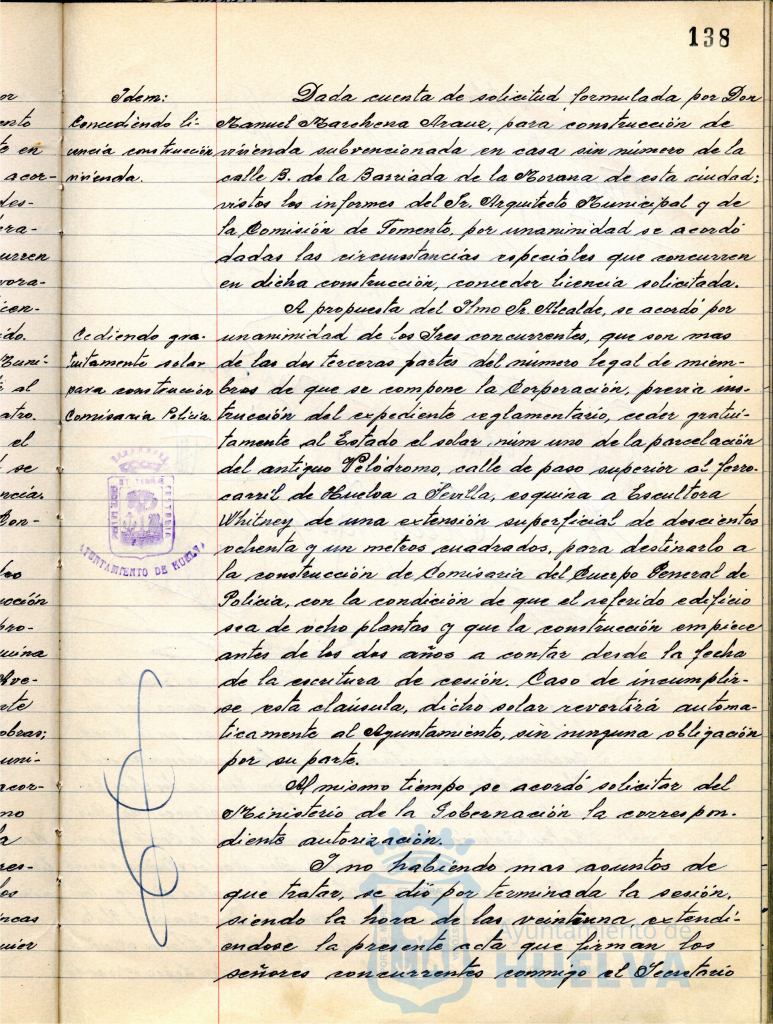 138
Idem:
Concediendo li-
cencia construcción
vivienda.
Dada cuenta de solicitud formulada por Don
Manuel Marchena Arauz, para construcción de
vivienda subvencionada en casa sin número de la
calle B. de la Barriada de la Morana de esta ciudad;
vistos los informes del Sr. Arquitecto Municipal y de
la Comisión de Fomento, por unanimidad se acordó
dadas las circunstancias especiales que concurren
en dicha construcción, conceder licencia solicitada.
Cediendo gra-
tuitamente solar
para construcción
Comisaria Policia
A propuesta del Ilmo Sr. Alcalde, se acordó por
unanimidad de los Sres concurrentes, que son mas
de las dos terceras partes del número legal de miem-
bros de que se compone la Corporación, previa ins-
trucción del expediente reglamentario, ceder gratui-
tamente al Estado el solar núm uno de la parcelación
del antiguo Velódromo, calle de paso superior al ferro-
carril de Huelva a Sevilla, esquina a Escultora
Whitney de una extensión superficial de doscientos
ochenta y un metros cuadrados, para destinarlo a
la construcción de Comisaria del Cuerpo General de
Policia, con la condición de que el referido edificio
sea de ocho plantas y que la construcción empiece
antes de los dos años a contar desde la fecha
de la escritura de cesión. Caso de incumplir-
se esta claúsula, dicho solar revertirá automa-
ticamente al Ayuntamiento, sin ninguna obligación
por su parte.
Al mismo tiempo se acordó solicitar del
Ministerio de la Gobernación la correspon-
diente autorización.
Y no habiendo mas asuntos de
que tratar, se dió por terminada la sesión,
siendo la hora de las veintiuna extendi-
endose la presente acta que firman los
señores concurrentes conmigo el Secretario
AYUNTAMIENTO DE HUELVA
Ayuntamiento de
HUELVA